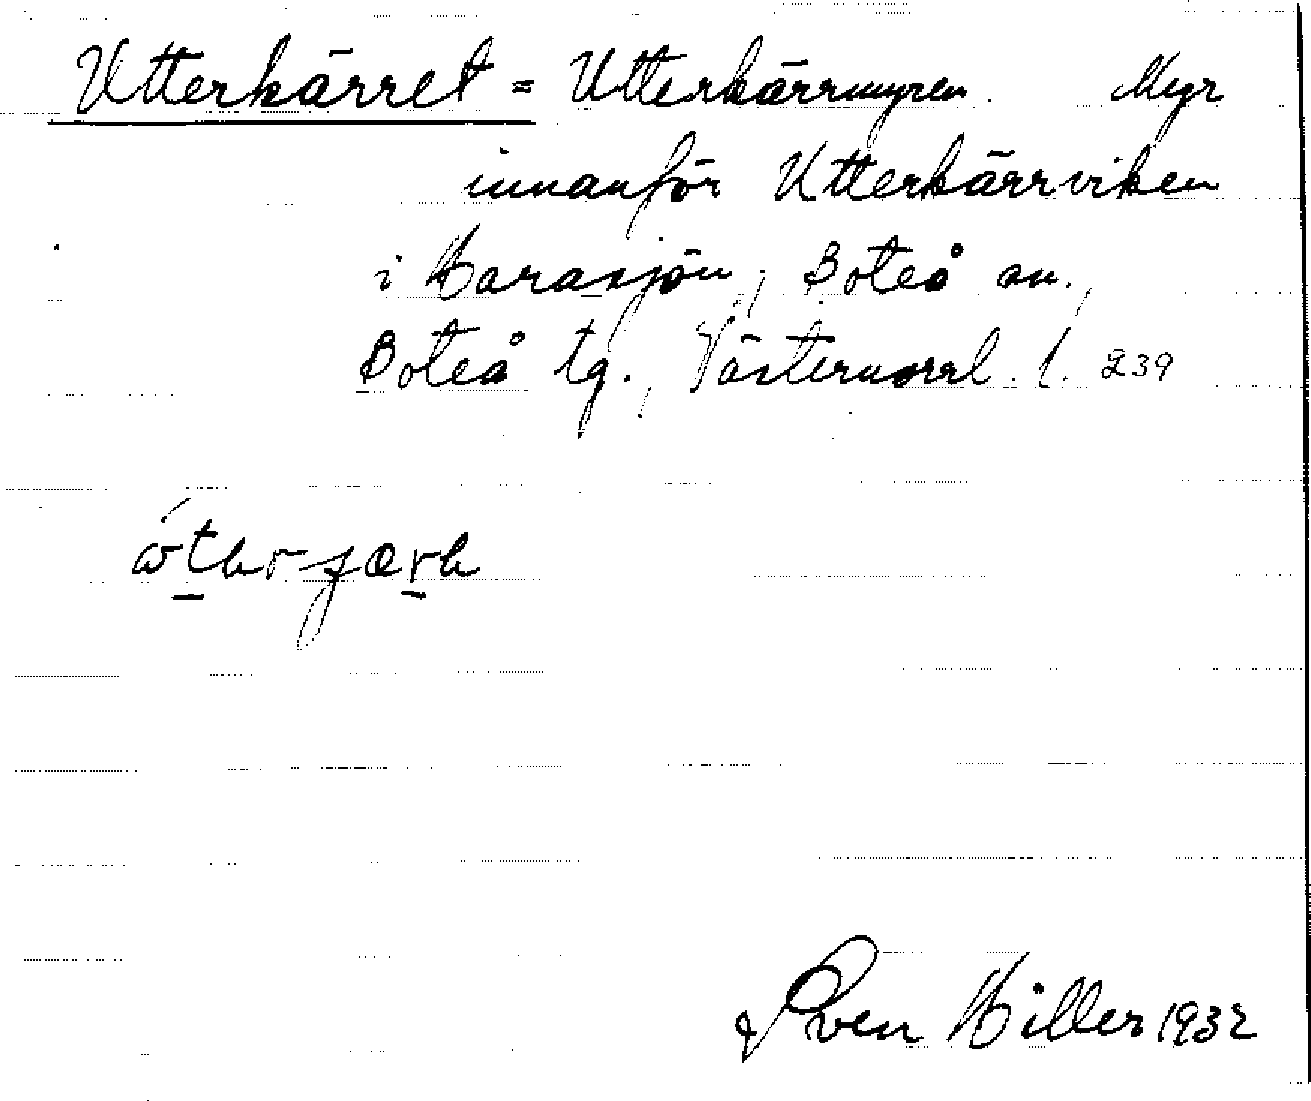 Utterkärret = Utterkärrmyren. Myr
innanför Utterkärrviken
i Harasjön; Boteå sn.,
Boteå tg., Västernorrl. l. 239
Sven Hiller 1932